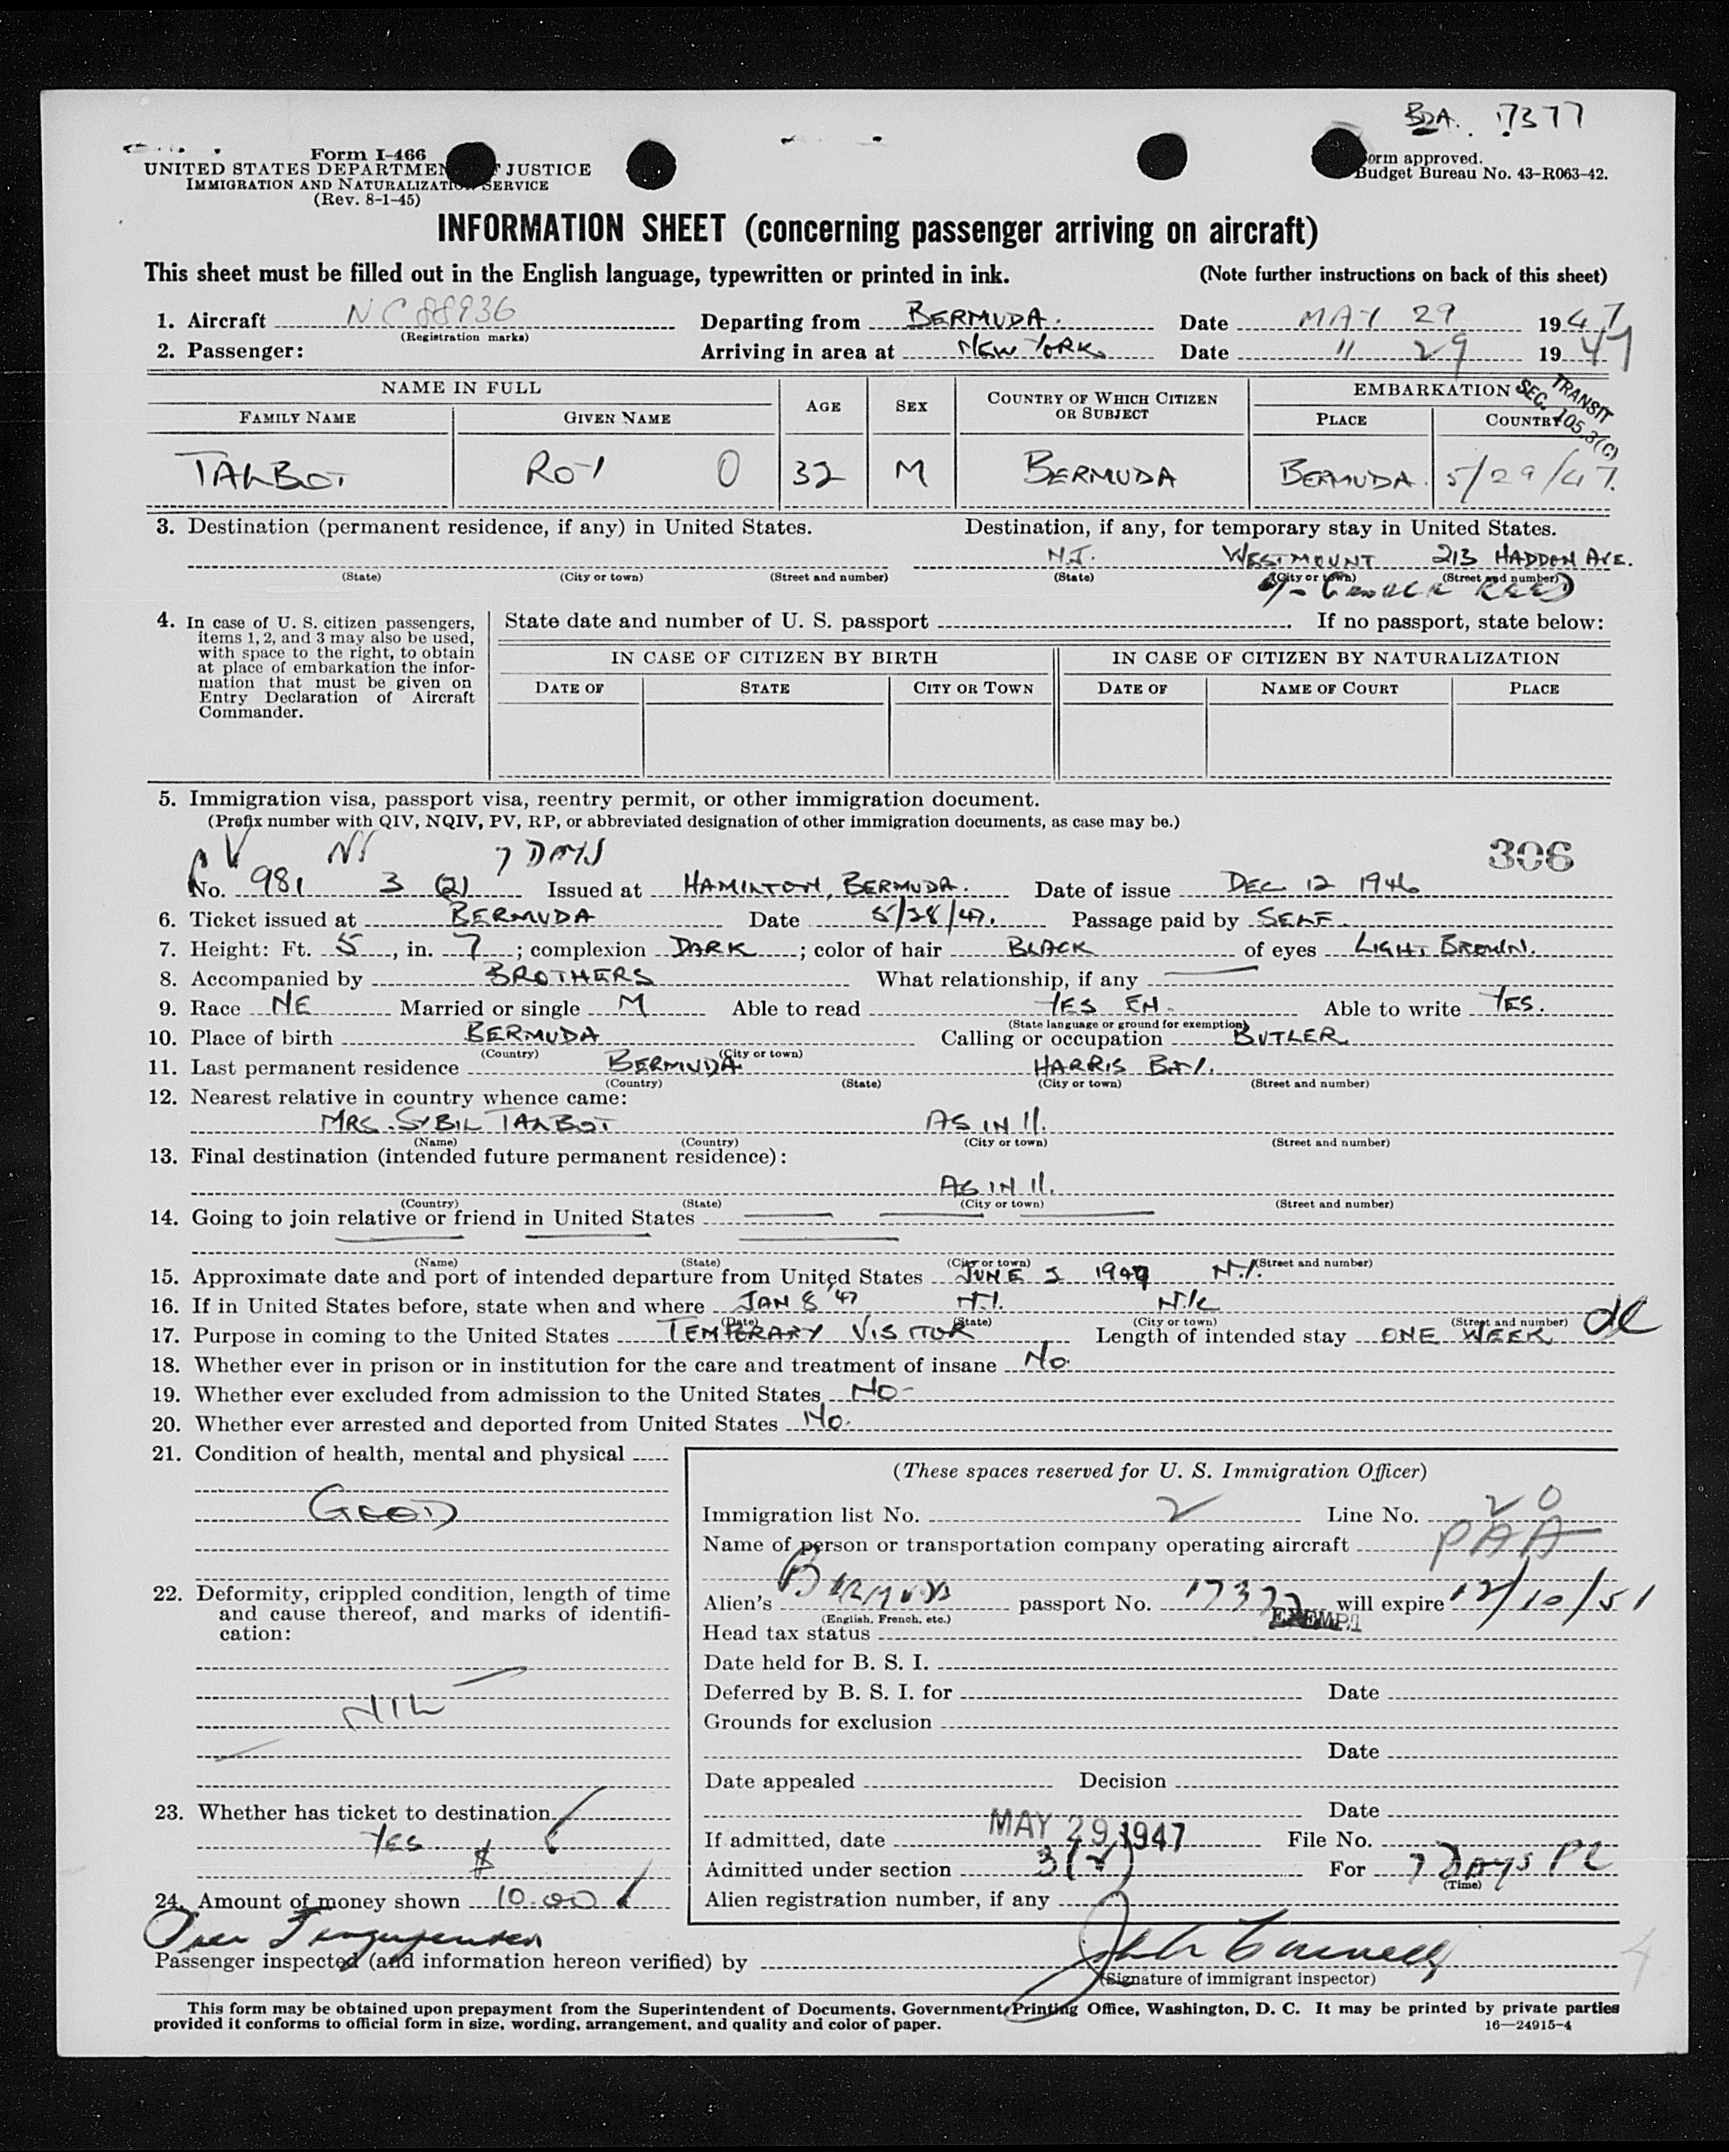 BDA. 17377
Form I-466
UNITED STATES DEPARTMENT OF JUSTICE
IMMIGRATION AND NATURALIZATION SERVICE
(Rev. 8-1-45)
Form approved.
Budget Bureau No. 43-R063-42.
INFORMATION SHEET (concerning passenger arriving on aircraft)
This sheet must be filled out in the English language, typewritten or printed in ink. (Note further instructions on back of this sheet)
1. Aircraft NC 88936 Departing from BERMUDA. Date MAY 29 1947
(Registration marks)
2. Passenger: Arriving in area at NEW YORK. Date " 29 1947
NAME IN FULL AGE SEX COUNTRY OF WHICH CITIZEN OR SUBJECT EMBARKATION
FAMILY NAME GIVEN NAME PLACE COUNTRY
TRANSIT
SEC. 105.3(C)
TALBOT ROY O 32 M BERMUDA BERMUDA. 5/29/47.
3. Destination (permanent residence, if any) in United States. Destination, if any, for temporary stay in United States.
N.J. WESTMOUNT 213 HADDON AVE.
(State) (City or town) (Street and number) (State) (City or town) (Street and number)
c/o GEORGE REED
4. In case of U. S. citizen passengers, items 1, 2, and 3 may also be used, with space to the right, to obtain at place of embarkation the information that must be given on Entry Declaration of Aircraft Commander.
State date and number of U. S. passport If no passport, state below:
IN CASE OF CITIZEN BY BIRTH IN CASE OF CITIZEN BY NATURALIZATION
DATE OF STATE CITY OR TOWN DATE OF NAME OF COURT PLACE
5. Immigration visa, passport visa, reentry permit, or other immigration document.
(Prefix number with QIV, NQIV, PV, RP, or abbreviated designation of other immigration documents, as case may be.)
PV 7 DAYS 306
No. 981 3 (2) Issued at HAMILTON, BERMUDA. Date of issue DEC 12 1946
6. Ticket issued at BERMUDA Date 5/28/47. Passage paid by SELF.
7. Height: Ft. 5, in. 7; complexion DARK; color of hair BLACK of eyes LIGHT BROWN.
8. Accompanied by BROTHERS What relationship, if any
9. Race NE Married or single M Able to read YES EN. Able to write YES.
(State language or ground for exemption)
10. Place of birth BERMUDA Calling or occupation BUTLER
(Country) (City or town)
11. Last permanent residence BERMUDA HARRIS BAY.
(Country) (State) (City or town) (Street and number)
12. Nearest relative in country whence came:
MRS. SYBIL TALBOT AS IN 11.
(Name) (Country) (City or town) (Street and number)
13. Final destination (intended future permanent residence):
AS IN 11.
(Country) (State) (City or town) (Street and number)
14. Going to join relative or friend in United States
(Name) (State) (City or town) (Street and number)
15. Approximate date and port of intended departure from United States JUNE 5 1947 N.Y.
16. If in United States before, state when and where JAN 8 '47 N.Y. N.K
(Date) (State) (City or town) (Street and number)
17. Purpose in coming to the United States TEMPERARY VISITOR Length of intended stay ONE WEEK
18. Whether ever in prison or in institution for the care and treatment of insane NO.
19. Whether ever excluded from admission to the United States NO-
20. Whether ever arrested and deported from United States NO.
21. Condition of health, mental and physical
GOOD
22. Deformity, crippled condition, length of time and cause thereof, and marks of identification:
NIL
23. Whether has ticket to destination
YES
$
24. Amount of money shown 10.00
(These spaces reserved for U. S. Immigration Officer)
Immigration list No. 2 Line No. 20
Name of person or transportation company operating aircraft PAA
Alien's Bermuda passport No. 17377 will expire 12/10/51
(English, French, etc.)
Head tax status EXEMPT
Date held for B. S. I.
Deferred by B. S. I. for Date
Grounds for exclusion
Date
Date appealed Decision
Date
If admitted, date MAY 29 1947 File No.
Admitted under section 3(2) For 7 DAYS PL
(Time)
Alien registration number, if any
Passenger inspected (and information hereon verified) by
(Signature of immigrant inspector)
This form may be obtained upon prepayment from the Superintendent of Documents, Government Printing Office, Washington, D. C. It may be printed by private parties
provided it conforms to official form in size, wording, arrangement, and quality and color of paper. 16—24915-4